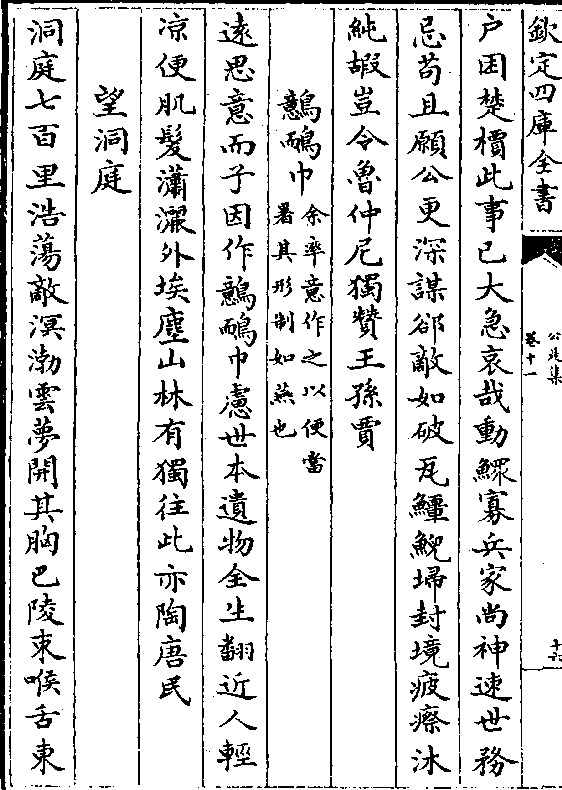 欽定四庫全書
公是集
卷十一
十六
戶困楚檟此事已大急哀哉動鰥寡兵家尚神速世務
忌苟且願公更深謀郤敵如破瓦䲔鯢埽封境疲瘵沐
純嘏豈令魯仲尼獨贊王孫賈
鷾鴯巾 余率意作之以便當
暑其形制如燕也
遠思意而子因作鷾鴯巾慮世本遺物全生翻近人輕
涼便肌髮瀟灑外埃塵山林有獨往此亦陶唐民
望洞庭
洞庭七百里浩蕩敵溟渤雲夢開其胸巴陵束喉舌東